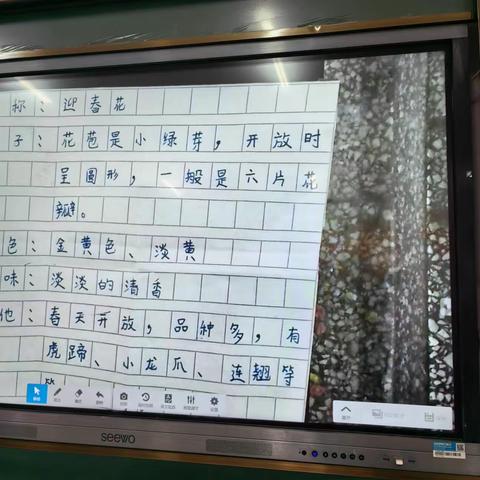 称：迎春花
子：花苞是小绿芽，开放时
呈圆形，一般是六片花
瓣。
色：金黄色、淡黄
味：淡淡的清香
他：春天开放，品种多，有
虎蹄、小龙爪、连翘等
seewo